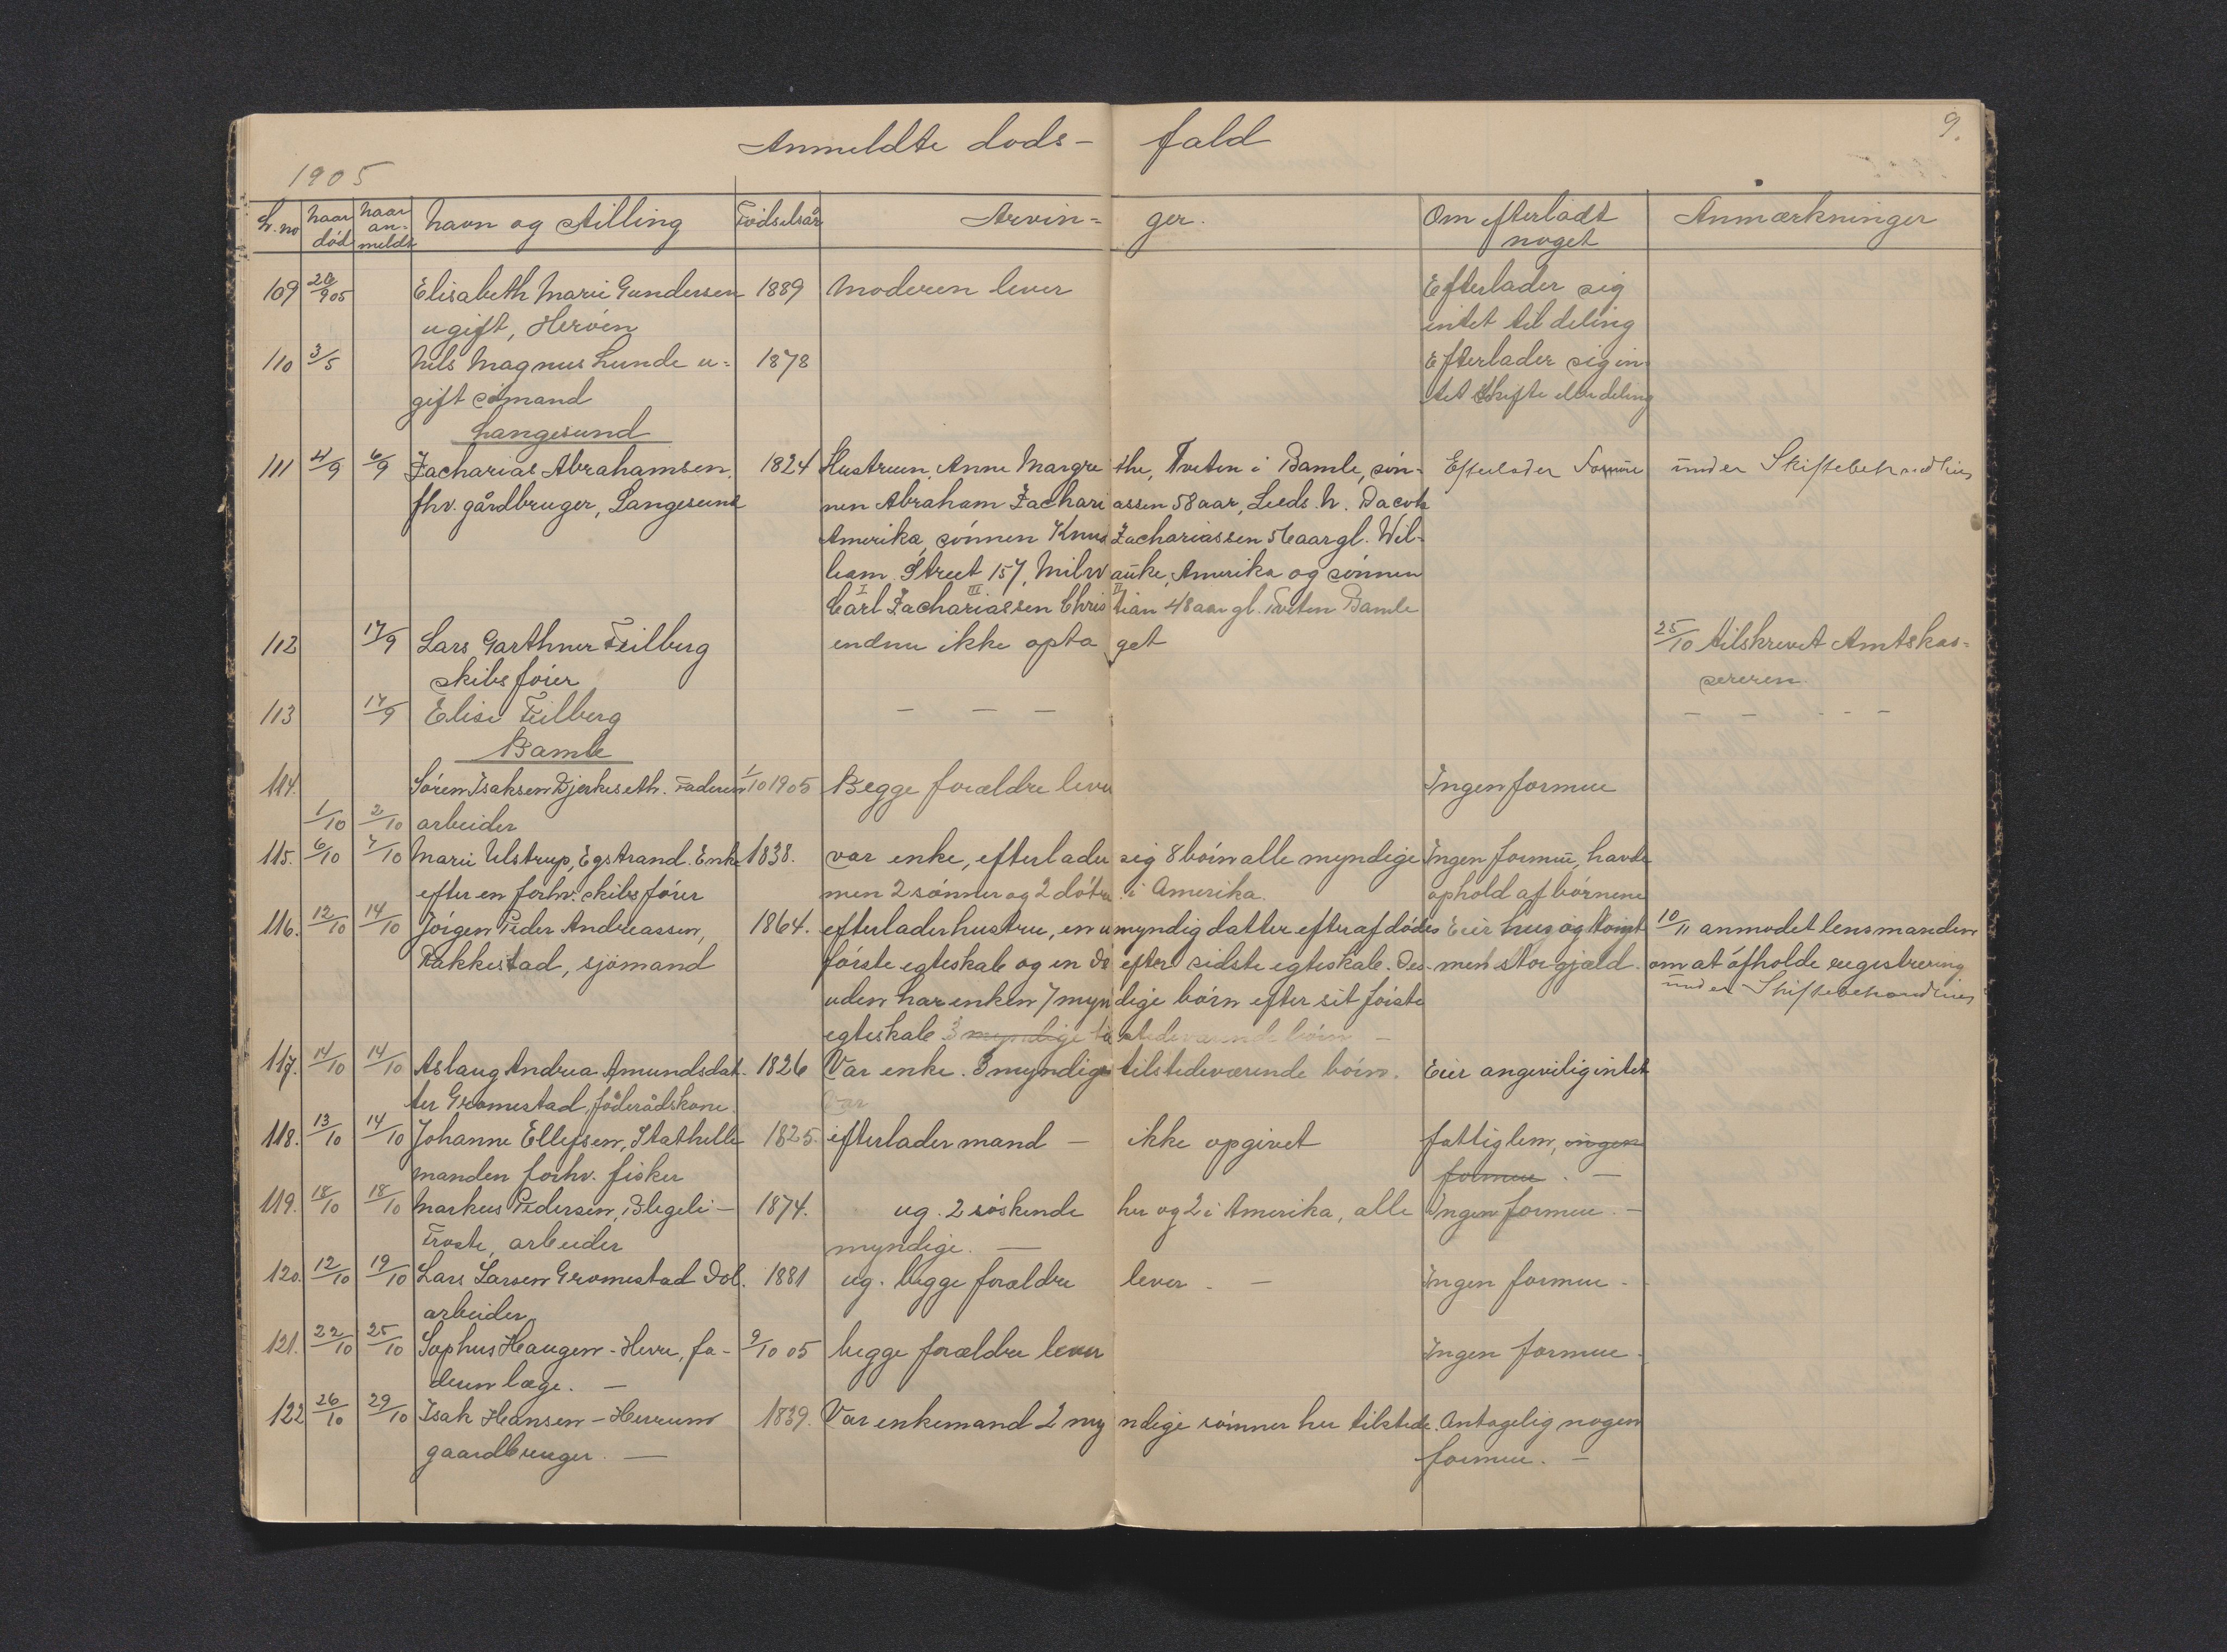 9.
Anmeldte döds- fald
1905
L. no naar död naar an- meldt navn og stilling Födselsår Arvin- ger. Om efterladt noget Anmærkninger
109 20/9 05 Elisabeth Marie Gundersen 1889 Moderen lever Efterlader sig
ugift, Heröen intet til deling
110 3/5 Nils Magnus Lunde u- 1878 Efterlader sig in
gift sömand tet skifte eller deling
Langesund
111 4/9 6/9 Zacharias Abrahamsen, 1824 Hustruen, Anne Margre the, Tveten i Bamle, sön- Efterlader Formue under Skiftebehandling
fhv. gårdbruger, Langesund nen Abraham Zachari assen 58 aar, Leeds. N. Dacota
Amerika, sönnen Knud Zachariassen 56 aar gl. Wil-
liam Street 157, Milw auke, Amerika og sönnen
I III II
Carl Zachariassen Chris tian 48 aar gl. Tveten Bamle
112 17/9 Lars Garthner Feilberg endnu ikke opta get 25/10 tilskrevet Amtskas-
skibsförer sereren.
113 17/9 Elise Feilberg — — — — — - -
Bamle
114. Sören Isaksen Bjerkeseth. Faderen 1/10 1905 Begge forældre lever Ingen formue
1/10 2/10 arbeider
115. 6/10 7/10 Marie Ulstrup, Egstrand. Enke 1838. var enke, efterlader sig 8 börn alle myndige Ingen formue, havde
efter en forhv. skibsförer men 2 sönner og 2 dötre i Amerika. ophold af börnene
116. 12/10 14/10 Jörgen Peder Andreassen, 1864. efterlader hustru, en u myndig datter efter afdödes Eier hus og tomt 10/11 anmodet lensmanden
Rakkestad, sjömand förste egteskab og en do efter sidste egteskab. Des- men stor gjæld. om at afholde registrering
uden har enken 7 myn dige börn efter sit förste under Skiftebehandling
egteskab 3 myndige til stedeværende börn —
117. 14/10 14/10 Aslaug Andrea Amundsdat- 1826 Var enke. 3 myndige tilstedeværende börn. Eier angivelig intet
ter Gromestad, föderådskone. Var
118. 13/10 14/10 Johanne Ellefsen, Stathelle 1825. efterlader mand — ikke opgivet fattiglem, ingen
manden forhv. fisker formue. —
119. 18/10 18/10 Markus Pedersen, Blegeli- 1874. ug. 2 söskende her og 2 i Amerika, alle Ingen formue. —
Froste, arbeider myndige. —
120. 12/10 19/10 Lars Larsen Gromestad Dol. 1881 ug. begge forældre lever. — Ingen formue.
arbeider
121. 22/10 25/10 Sophus Haugen - Herre, fa- 9/10 05 begge forældre lever Ingen formue.
deren læge. —
122 26/10 29/10 Isak Hansen - Herrum 1839. Var enkemand 2 my ndige sönner her tilstede. Antagelig nogen
gaardbruger. — formue. —